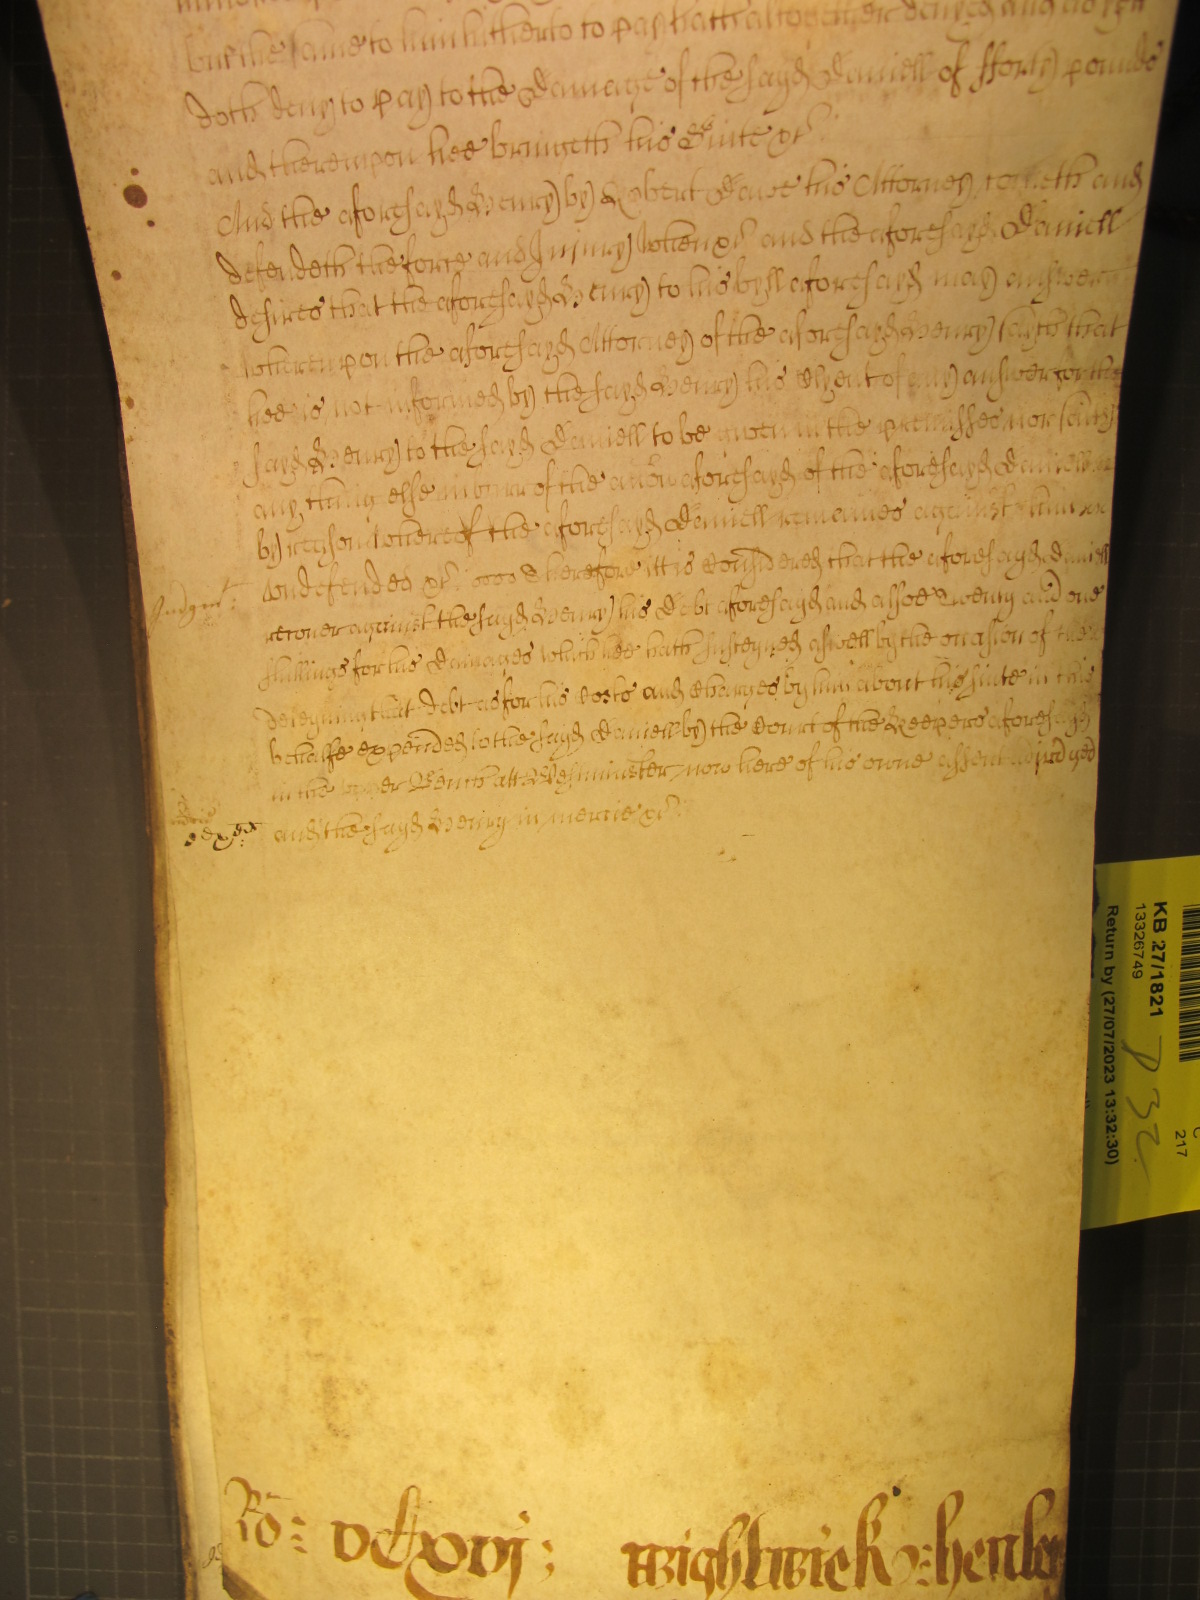 but the same to him hitherto to pay hath altogether denyed and as yett
doth deny to pay to the Damage of the sayd Daniell of fforty pounds
and thereupon hee bringeth his Suite &c
And the aforesayd Henry by Robert Dawe his Attorney cometh and
defendeth the force and Injury when &c and the aforesayd Daniell
desires that the aforesayd Henry to his byll aforesayd may answere
whereupon the aforesayd Attorney of the aforesayd Henry sayth that
hee is not informed by the sayd Henry his Clyent of any answer for the
sayd Henry to the sayd Daniell to be given in the premisses nor sayth
any thing else in barr of the accon aforesayd of the aforesayd Daniell
by reason whereof the aforesayd Daniell remaines against him
undefended &c Therefore itt is Considered that the aforesayd Daniell
Judgmt:
recover against the sayd Henry his Debt aforesayd and alsoe Twenty and one
shillings for his Damages which hee hath susteyned aswell by the occasion of the
deteyning that debt as for his Costs and Charges by him about his suite in this
behalfe expended to the sayd Daniell by the Court of the Keepers aforesayd
in the upper Bench att Westminster now here of his owne assent adjudged
and the sayd Henry in mercie &c
Ro: Dlxvj: Wightwick: henley
KB 27/1821
13326749
Return by (27/07/2023 13:32:30)
217